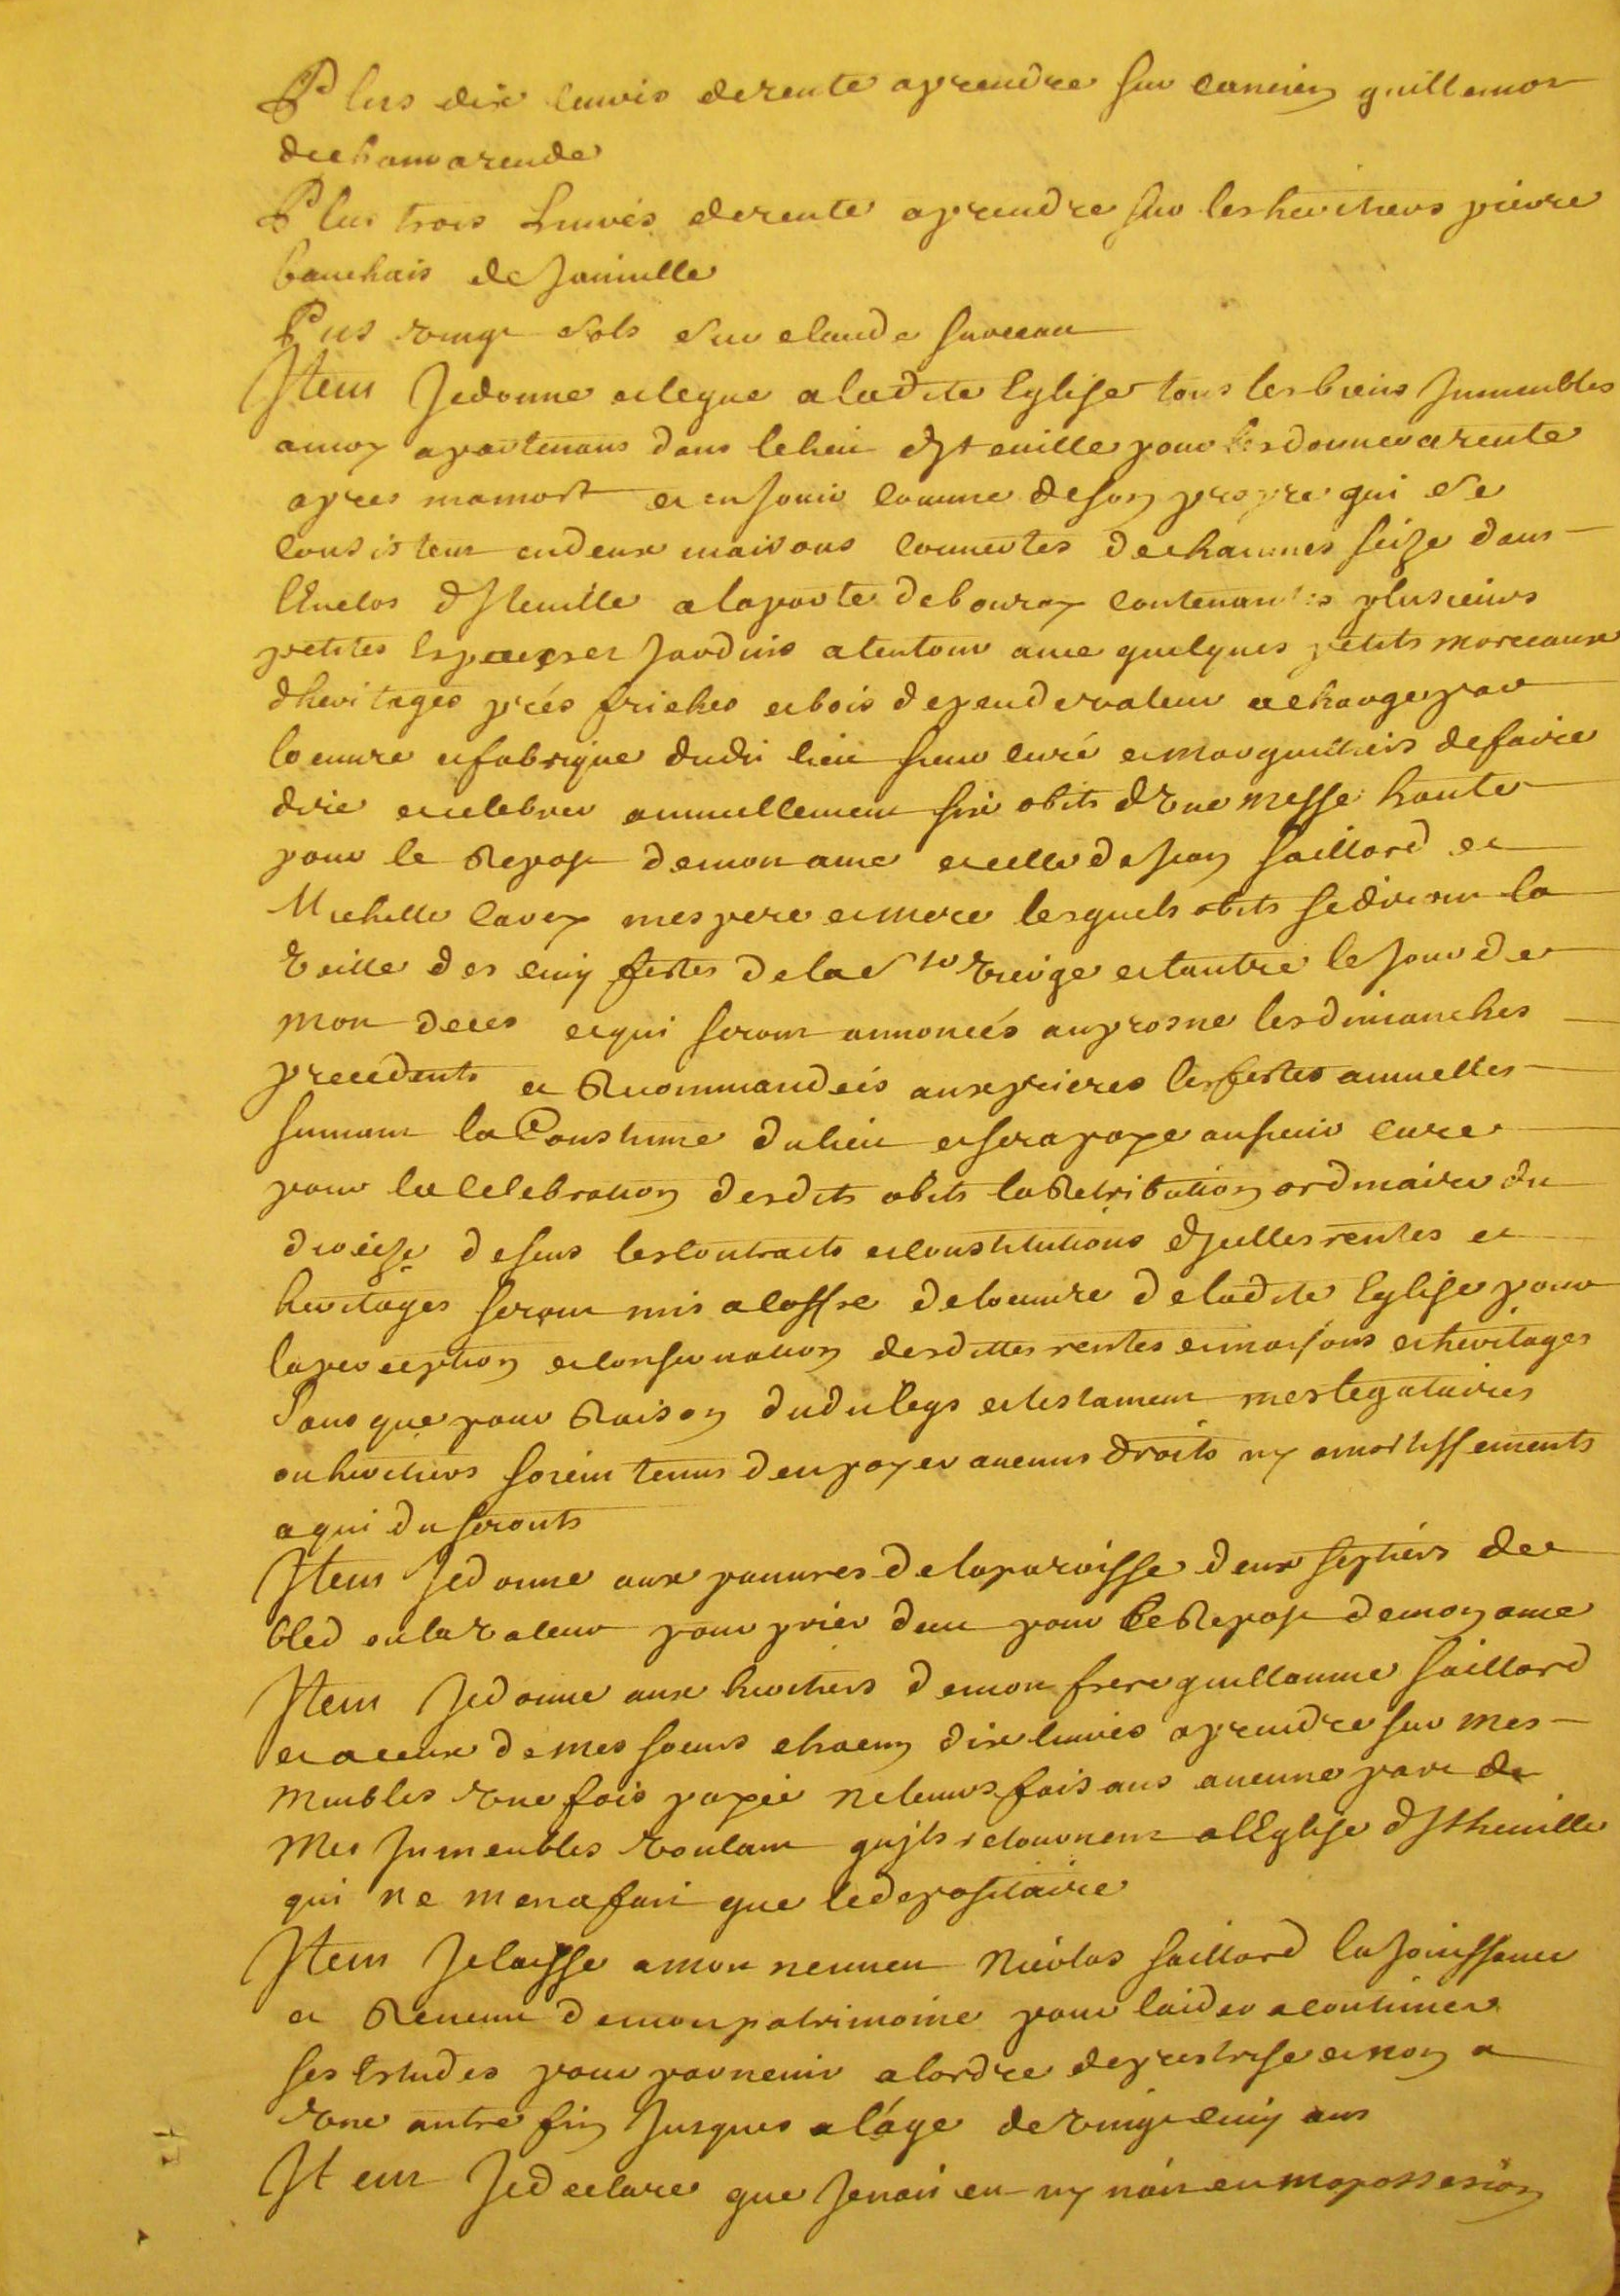 Plus dix livres de rente a prendre sur lancien guillemot
de chamarende
Plus trois Livres de rente a prendre sur les heritiers pierre
bauchais de Janville
Pus vingt sols sur claude
Item Je donne et legue a ladite Eglise tous les biens Jmmeubles
a moy apartenans dans le lieu dJteuille pour les donner a rente
apres ma mort et en Jouir comme de son propre qui se
consistent en deux maisons couuertes de chaumes seize dans
lEnclos dJteuille a la porte de bouray contenantes plusieurs
petites Espaces et Jardins alentour auec quelques petits morceaux
dheritages prés friches et bois de peu de valeur a charge par
loeuure et fabrique dudit lieu sieur curé et marguilliers de faire
dire et celebrer annuellement six obits dVne Messe haute
pour le Repos de mon ame et celle de Jean saillard et
Michelle Cavoy mes pere et mere lesquels obits se diront la
Veille des cinq festes de la Ste Vierge et lautre le Jour de
mon deces et qui seront annoncés au prosne les dimanches
precedents et Recommandeés aux prieres les festes annuelles
suiuant la Coustume du lieu et sera paye au sieur curé
pour la Celebration desdits obits la Retribution ordinaire du
dioceze desus les Contracts et constitutions dJcelles rentes et
heritages seront mis a loffre de loeuure de ladite Eglise pour
la perception et conseruation desdittes rentes et maisons et heritages
Sans que pour Raison dudit legs et testament mes legataires
ou heritiers soient tenus den payer aucuns droits ny amortissements
a qui du seronts
Item Je donne aux pauures de la paroisse deux septiers de
bled ou la Valeur pour prier dieu pour le Repos de mon ame
Item Je donne aux heritiers de mon frere guillaume saillard
et a ceux de mes soeurs chacun dix liures a prendre sur mes
meubles Vne fois payée ne leurs faisans aucune part de
mes Jmmeubles Voulant qujls retournent a lEglise dJtheuille
qui ne men a fait que le depositaire
Item Je laisse a mon neuueu Nicolas saillard la Jouissance
et Reuenu de mon patrimoine pour laider a continuer
ses Estudes pour paruenir a lordre de prestrise et non a
Vne autre fin Jusques a láge de Vingt cinq ans
Jtem Je declare que Je nai eu ny nai en ma possession